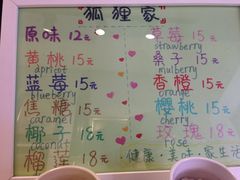 狐狸家
原味 12元
黄桃 15元
apricot
蓝莓 15元
blueberry
焦糖 15元
caramel
椰子 18元
coconut
榴莲 18元
草莓 15元
strawberry
桑子 15元
mulberry
香橙 15元
orange
樱桃 15元
cherry
玫瑰 18元
rose
·健康·美味·家生活